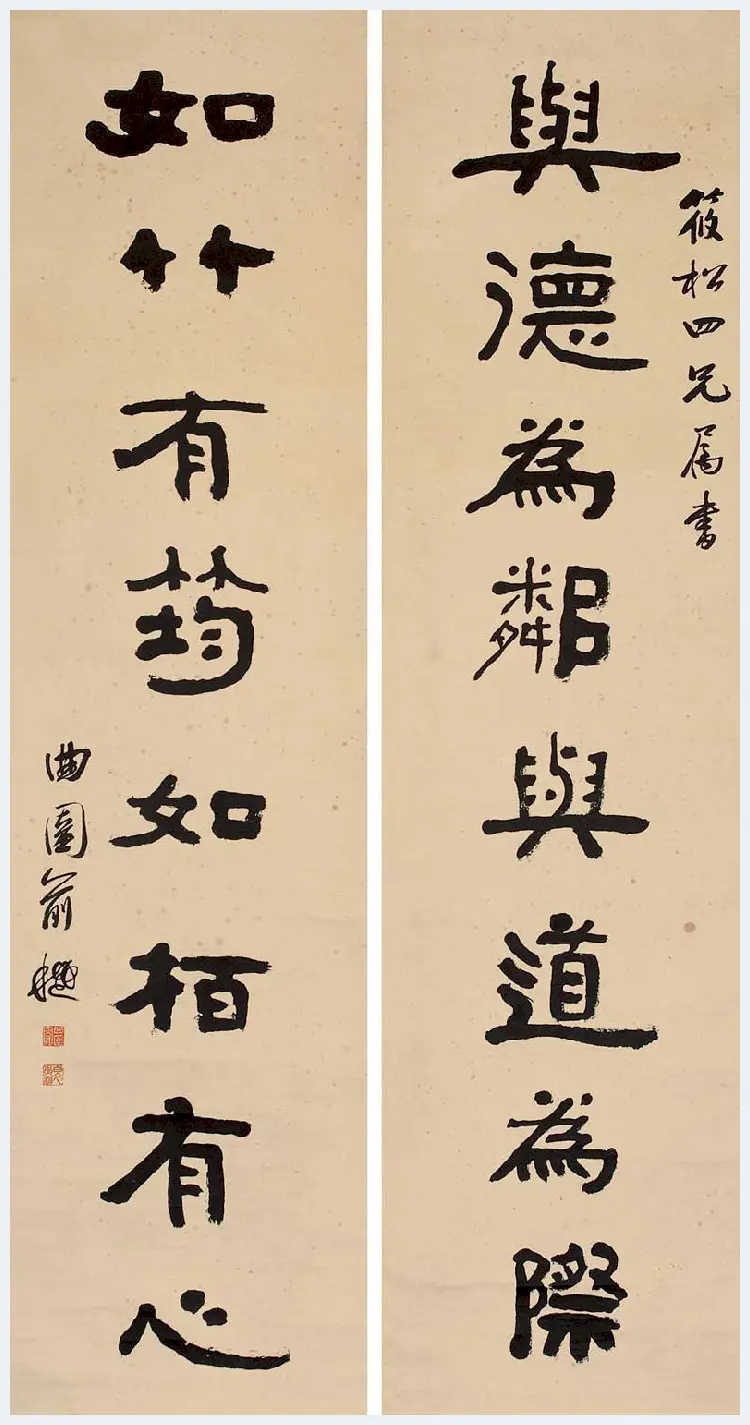 筱松四兄属書
與德為鄰與道為際
如竹有筠如栢有心
曲園俞樾